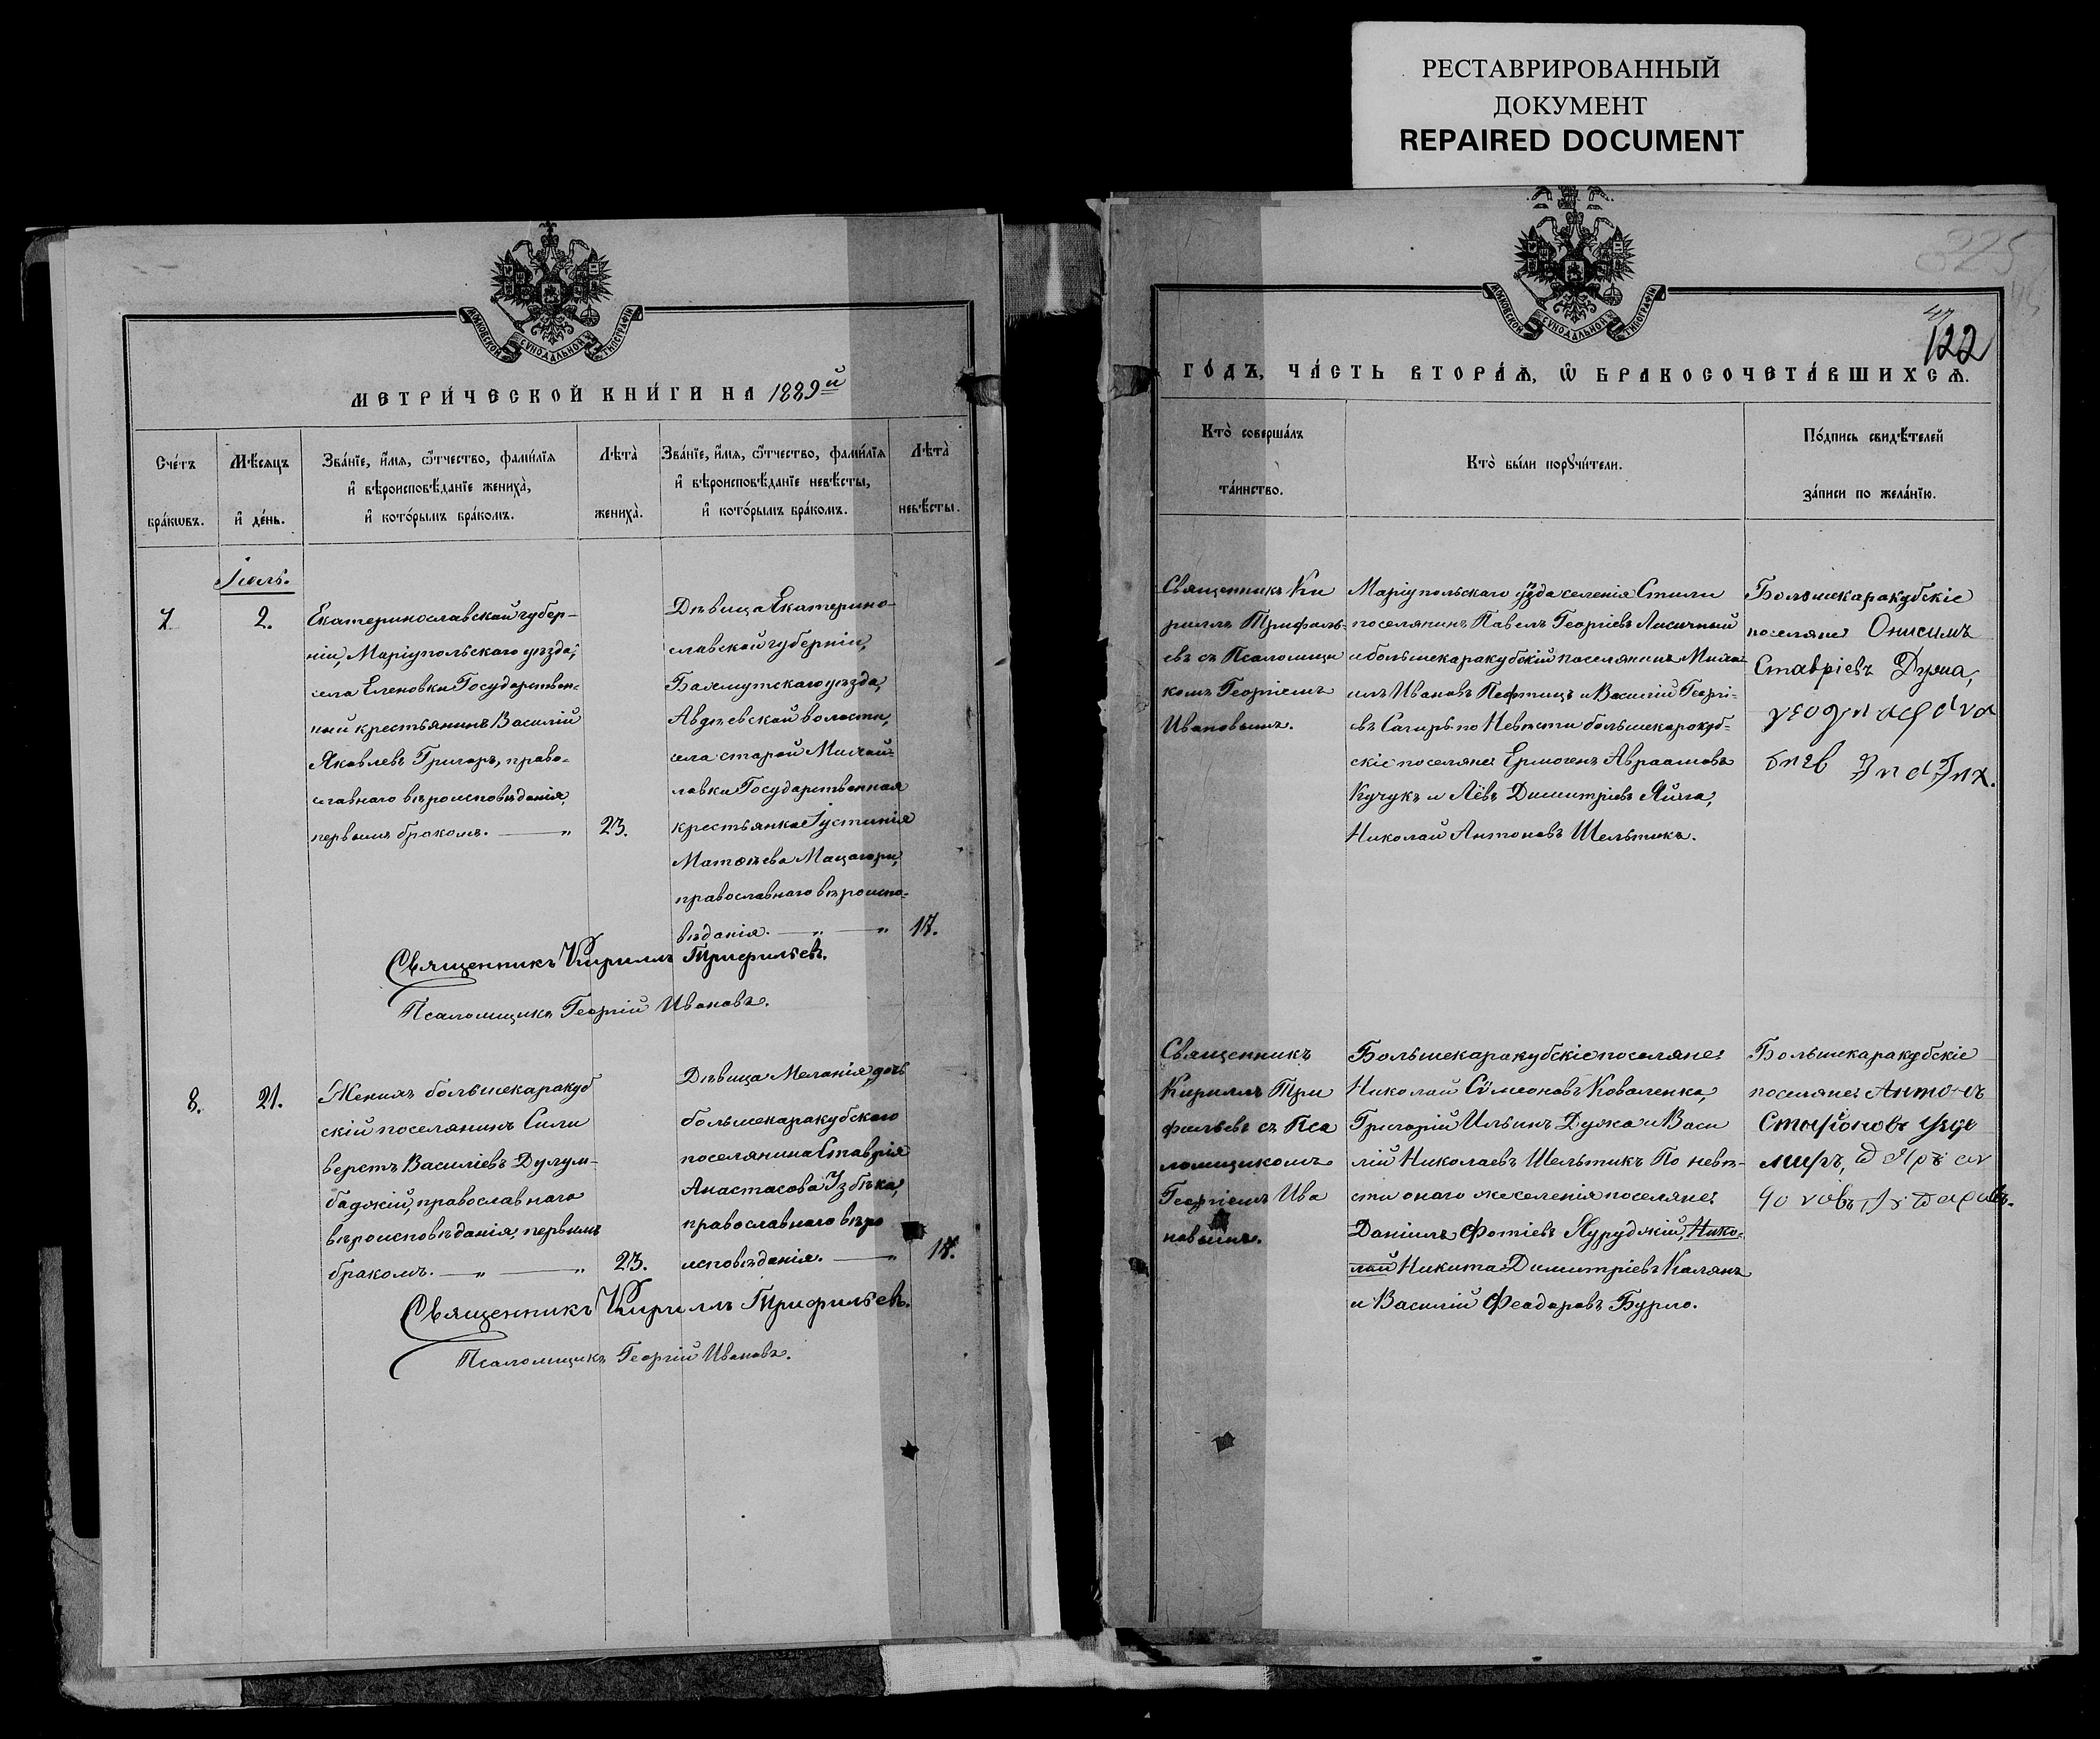 РЕСТАВРИРОВАННЫЙ
ДОКУМЕНТ
REPAIRED DOCUMENT
МОСКОВСКОЙ СѴНОДАЛЬНОЙ ТИПОГРАФІИ
МЕТРИ́ЧЕСКОЙ КНИ́ГИ НА 1889й
Сче́тъ
бра́кѡвъ.
Мѣ́сяцъ
и҆ де́нь.
Зва́нїе, и҆́мѧ, ѻ҆́тчество, фами́лїѧ
и҆ вѣроисповѣ́данїе жениха̀,
и҆ кото́рымъ бра́комъ.
Лѣта̀
жениха̀.
Зва́нїе, и҆́мѧ, ѻ҆́тчество, фами́лїѧ
и҆ вѣроисповѣ́данїе невѣ́сты,
и҆ кото́рымъ бра́комъ.
Лѣта̀
невѣ́сты.
Іюль.
7
2.
Екатеринославской губер-
ніи, Маріупольскаго уѣзда,
села Еленовки Государствен-
ный крестьянинъ Василій
Яковлевъ Григоръ, право-
славнаго вѣроисповѣданія,
первымъ бракомъ. — „
23.
Дѣвица Екатерино-
славской губерніи,
Бахмутскаго уѣзда,
Авдѣевской волости,
села старой Михай-
ловки Государственная
крестьянка Іустинія
Матѳѣева Мацагоръ,
православнаго вѣроиспо-
вѣданія. — „ — „
17.
Священникъ Кириллъ Трифильевъ.
Псаломщикъ Георгій Ивановъ.
8.
21.
Женихъ большекаракуб
скій поселянинъ Сили
верстъ Василіевъ Дулум-
баджій, православнаго
вѣроисповѣданія, первымъ
бракомъ. — „ — „
23.
Дѣвица Меланія, дочь
большекаракубскаго
поселянина Ставрія
Анастасова Ізбѣка,
православнаго вѣро
исповѣданія. — „
17.
Священникъ Кириллъ Трифильевъ.
Псаломщикъ Георгій Ивановъ.
МОСКОВСКОЙ СѴНОДАЛЬНОЙ ТИПОГРАФІИ
325
47
122
ГО́ДЪ, ЧА́СТЬ ВТОРА́Ѧ, Ѽ БРАКОСОЧЕТА́ВШИХСѦ.
Кто̀ соверша́лъ
та́инство.
Кто̀ бы́ли порꙋчи́тели.
По́дпись свидѣ́телей
за́писи по жела́нїю.
Священникъ Ки
риллъ Трифиль-
евъ съ Псаломщи
комъ Георгіемъ
Ивановымъ.
Маріупольскаго уѣзда селенія Стыли
поселянинъ Павелъ Георгіевъ Лисичный
и большекаракубскій поселянинъ Миха-
илъ Ивановъ Пефтицъ и Василій Георгі-
евъ Сагиръ по Невѣсти большекаракуб-
скіе поселяне Ермогенъ Авраамовъ
Кучукъ и Лёвъ Димитріевъ Яйла,
Николай Антоновъ Шельтикъ.
Большекаракубскіе
поселяне Онисимъ
Ставріевъ Дузма,
Священникъ
Кириллъ Три
фильевъ съ Пса
ломщикомъ
Георгіемъ Ива
новымъ.
Большекаракубскіе поселяне:
Николай Сѵмеоновъ Коваленко,
Григорій Ильинъ Дужка и Васи
лій Николаевъ Шельтикъ По невѣ-
сти онаго же селенія поселяне:
Даніилъ Фотіевъ Куруджій, Нико-
лай Никита Димитріевъ Калянъ
и Василій Феодоровъ Бурло.
Большекаракубскіе
поселяне Антонъ